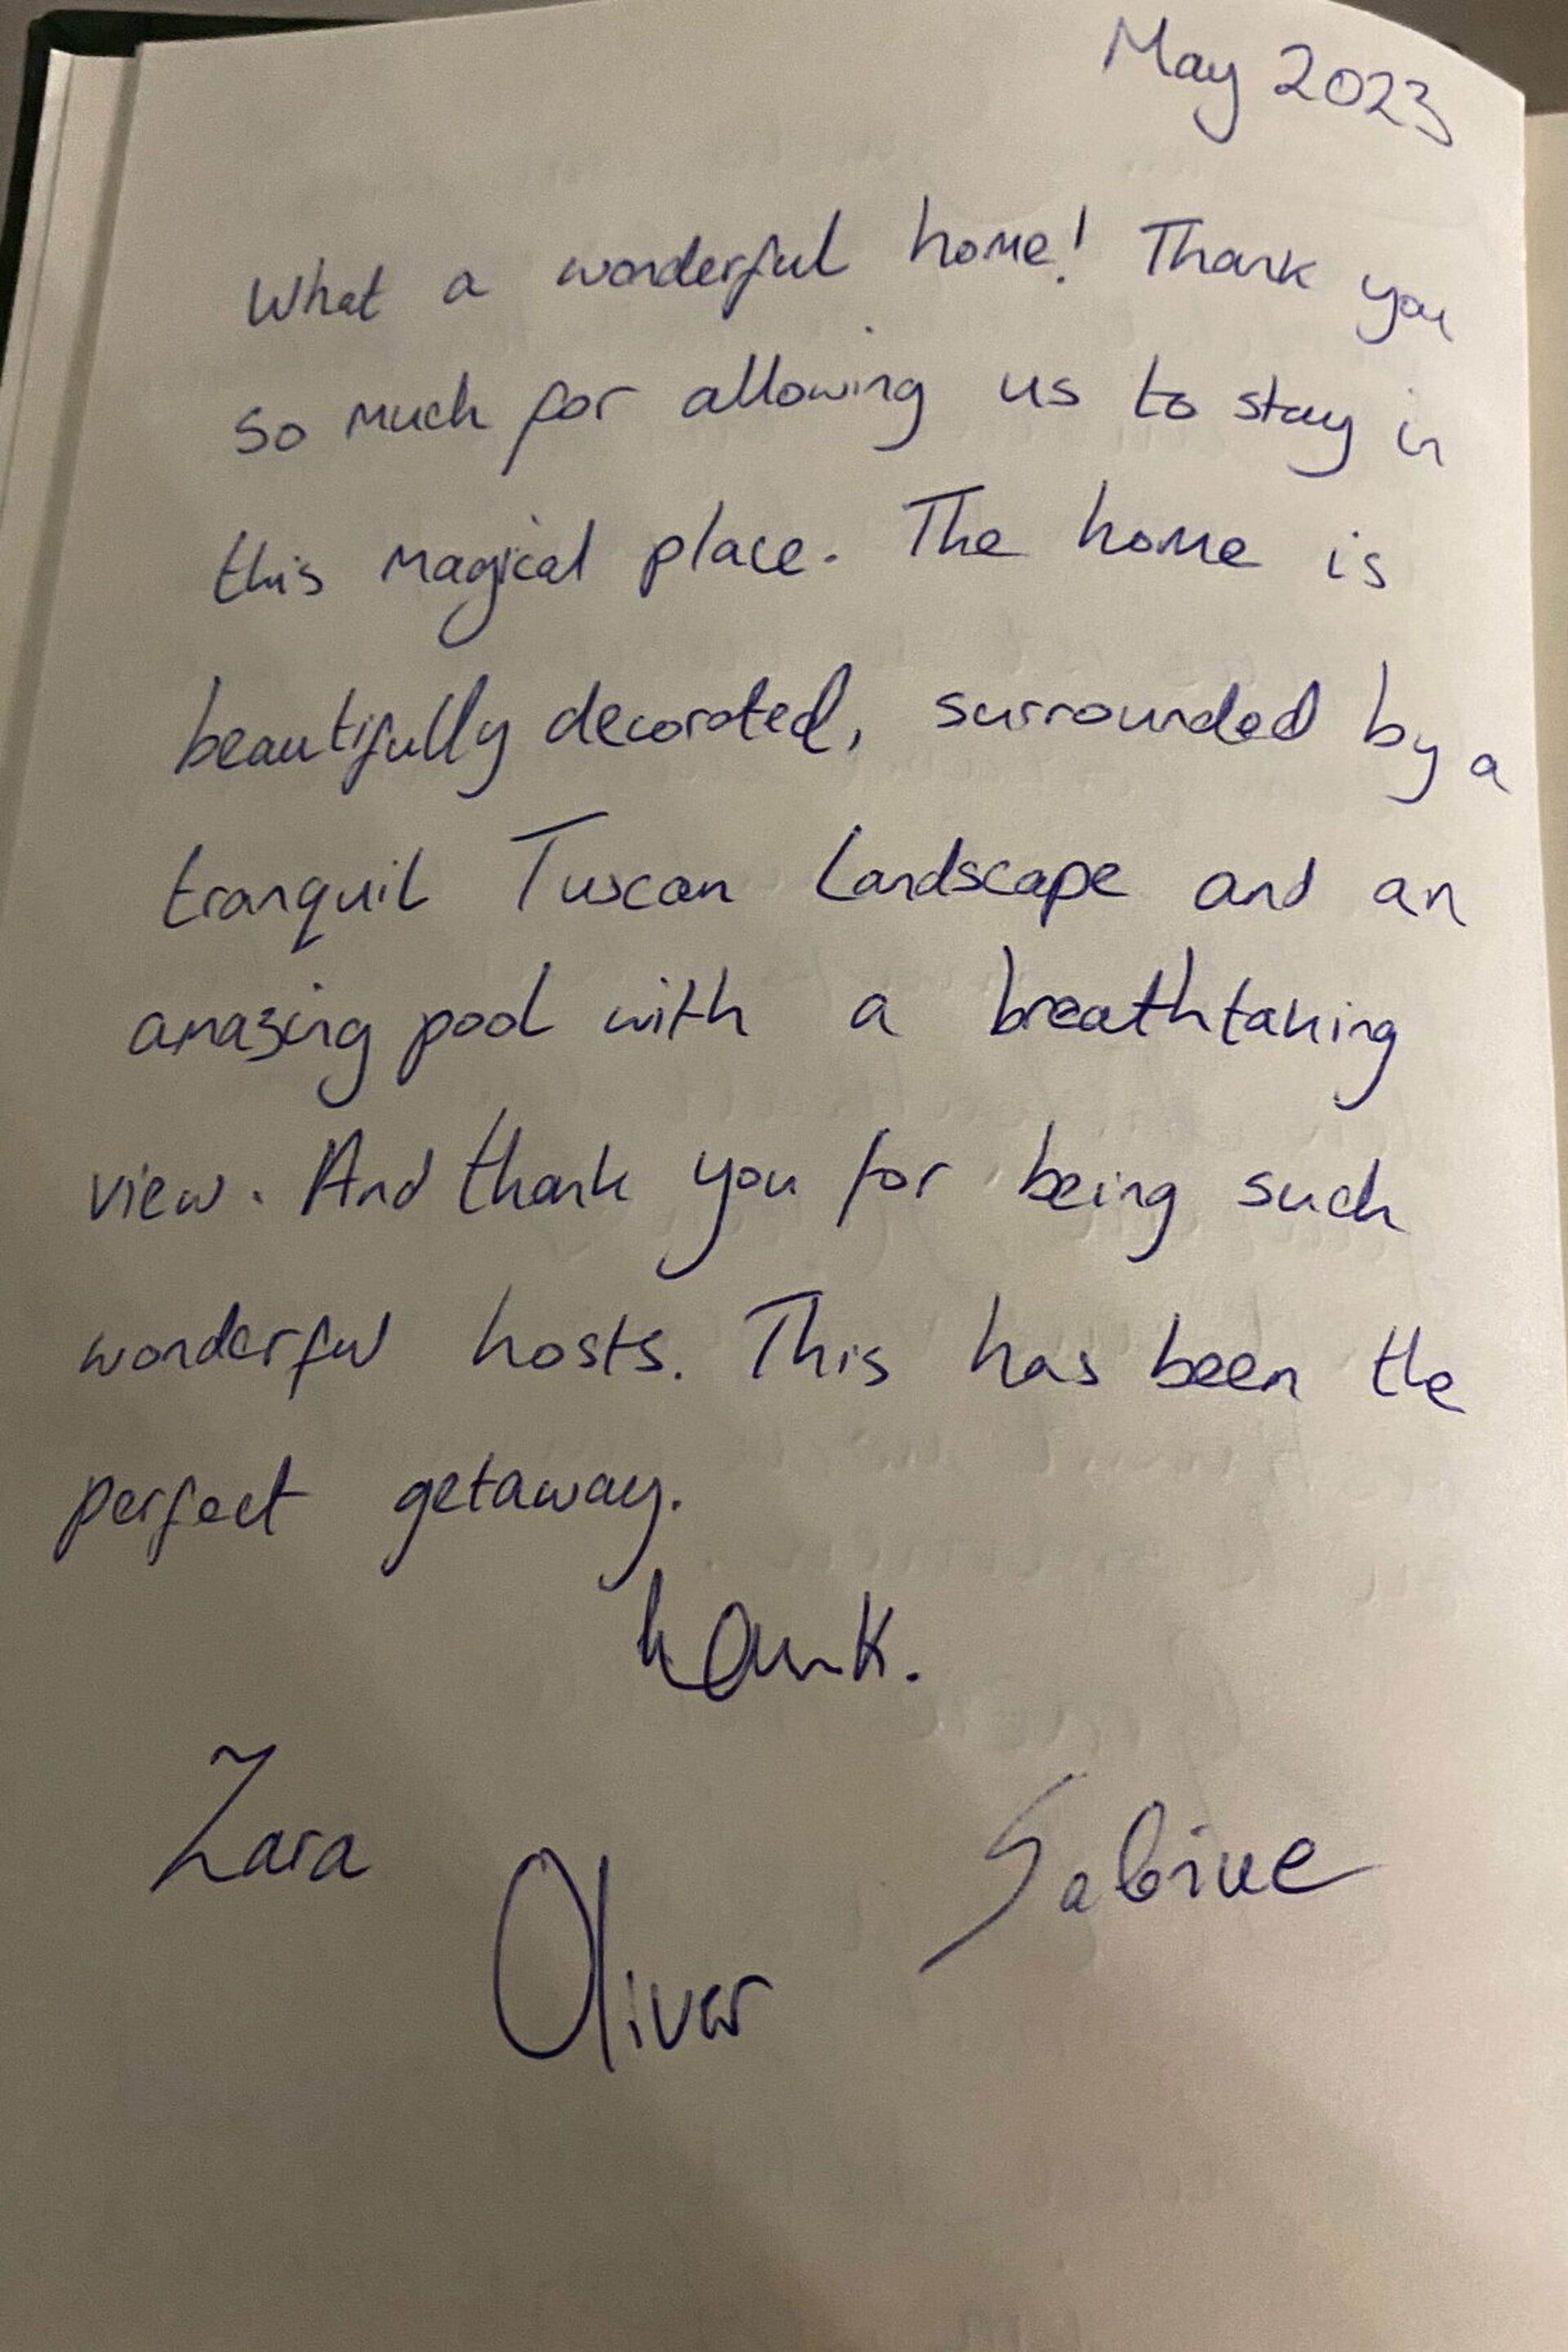 May 2023
What a wonderful home! Thank you
so much for allowing us to stay in
this magical place. The home is
beautifully decorated, surrounded by a
tranquil Tuscan landscape and an
amazing pool with a breathtaking
view. And thank you for being such
wonderful hosts. This has been the
perfect getaway.
Zara
Oliver
Sabine